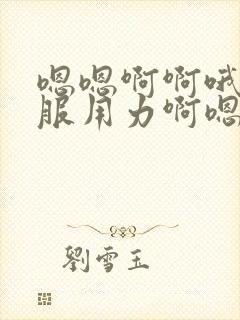 嗯嗯啊啊哦
服用力啊嗯
劉雪玉